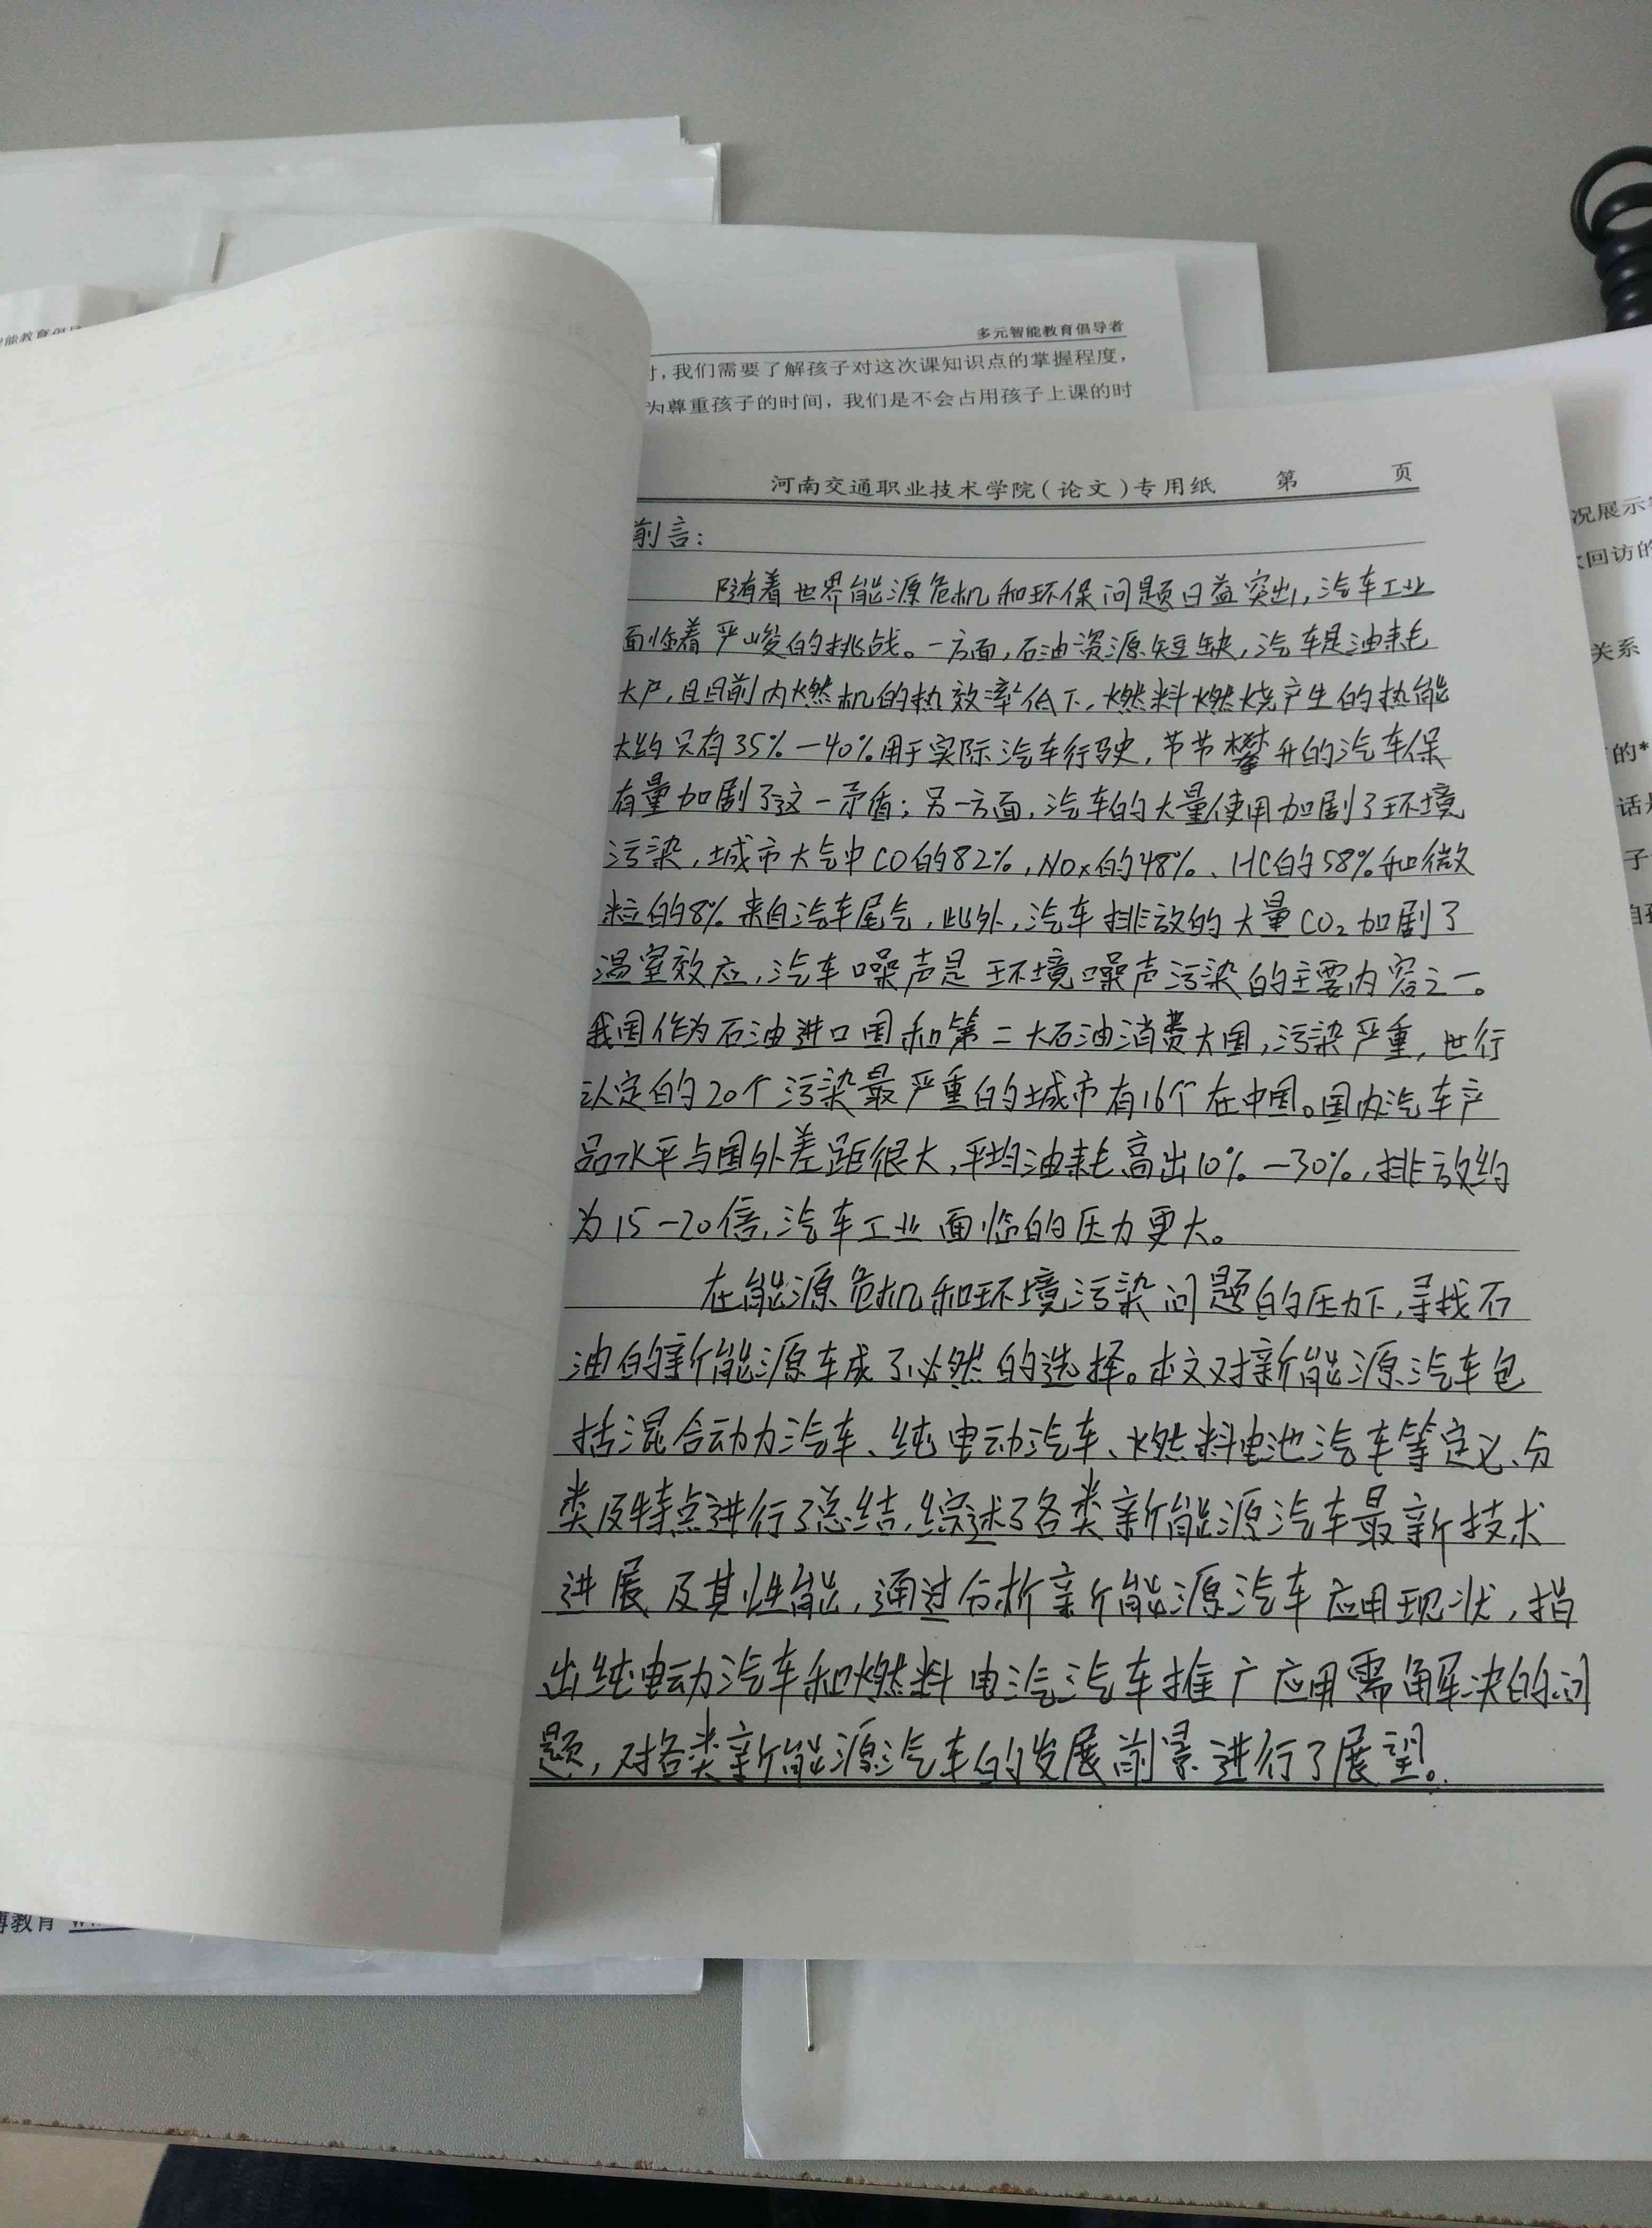 多元智能教育倡导者
我们需要了解孩子对这次课知识点的掌握程度，
为尊重孩子的时间，我们是不会占用孩子上课的时
河南交通职业技术学院(论文)专用纸 第 页
前言：
随着世界能源危机和环保问题日益突出，汽车工业
面临着严峻的挑战。一方面，石油资源短缺，汽车是油耗
大户，且目前内燃机的热效率低下，燃料燃烧产生的热能
大约只有35%—40%用于实际汽车行驶，节节攀升的汽车保
有量加剧了这一矛盾；另一方面，汽车的大量使用加剧了环境
污染，城市大气中CO的82%，NOx的48%、HC的58%和微
粒的8%来自汽车尾气，此外，汽车排放的大量CO₂加剧了
温室效应，汽车噪声是环境噪声污染的主要内容之一。
我国作为石油进口国和第二大石油消费大国，污染严重，世行
认定的20个污染最严重的城市有16个在中国。国内汽车产
品水平与国外差距很大，平均油耗高出10%—30%，排放约
为15—20倍，汽车工业面临的压力更大。
在能源危机和环境污染问题的压力下，寻找石
油的新能源车成了必然的选择。本文对新能源汽车包
括混合动力汽车、纯电动汽车、燃料电池汽车等定义、分
类及特点进行了总结，综述了各类新能源汽车最新技术
进展及其性能，通过分析新能源汽车应用现状，指
出纯电动汽车和燃料电汽汽车推广应用需解决的问
题，对各类新能源汽车的发展前景进行了展望。
况展示
回访的
关系
的*
话
子
教育